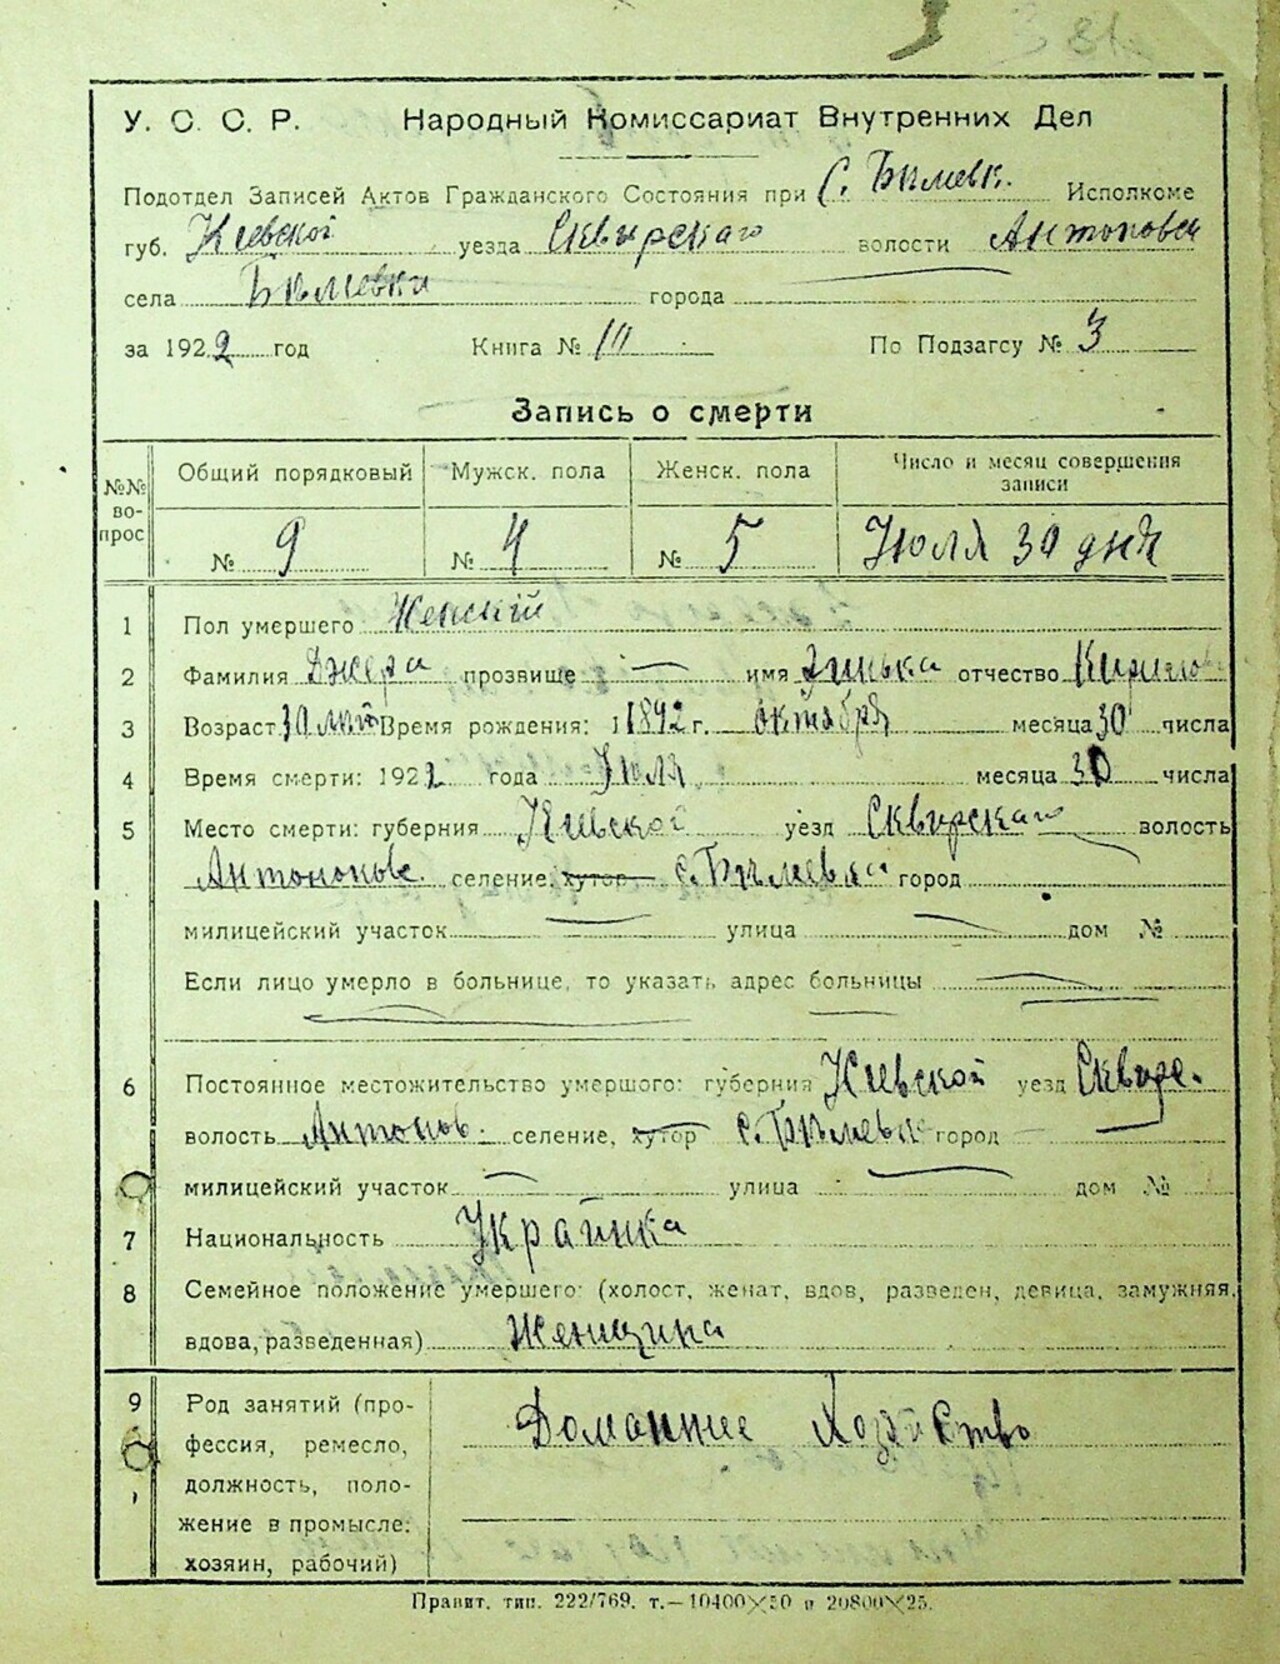 У. С. С. Р. Народный Комиссариат Внутренних Дел
Подотдел Записей Актов Гражданского Состояния при С. Исполкоме
губ. Киевской уезда Сквирскаго волости Антоновск
села города
за 1922 год Книга № По Подзагсу № 3
Запись о смерти
№№ вопрос Общий порядковый Мужск. пола Женск. пола Число и месяц совершения записи
№ 9 № 4 № 5 Июля 30 дня
1 Пол умершего Женский
2 Фамилия Джера прозвище — имя отчество
3 Возраст 30 лет Время рождения: 1892 г. октября месяца 30 числа
4 Время смерти: 1922 года Июля месяца 30 числа
5 Место смерти: губерния Киевской уезд Сквирскаго волость
селение, хутор город
милицейский участок — улица — дом №
Если лицо умерло в больнице, то указать адрес больницы —
6 Постоянное местожительство умершого: губерния Киевской уезд Сквирс.
волость Антонов. селение, хутор город —
милицейский участок — улица — дом №
7 Национальность Украинка
8 Семейное положение умершего: (холост, женат, вдов, разведен, девица, замужняя,
вдова, разведенная) Женщина
9 Род занятий (про- Домашнее Хозяйство
фессия, ремесло,
должность, поло-
жение в промысле:
хозяин, рабочий)
Правит. тип. 222/769. т.—10400×50 и 20800×25.